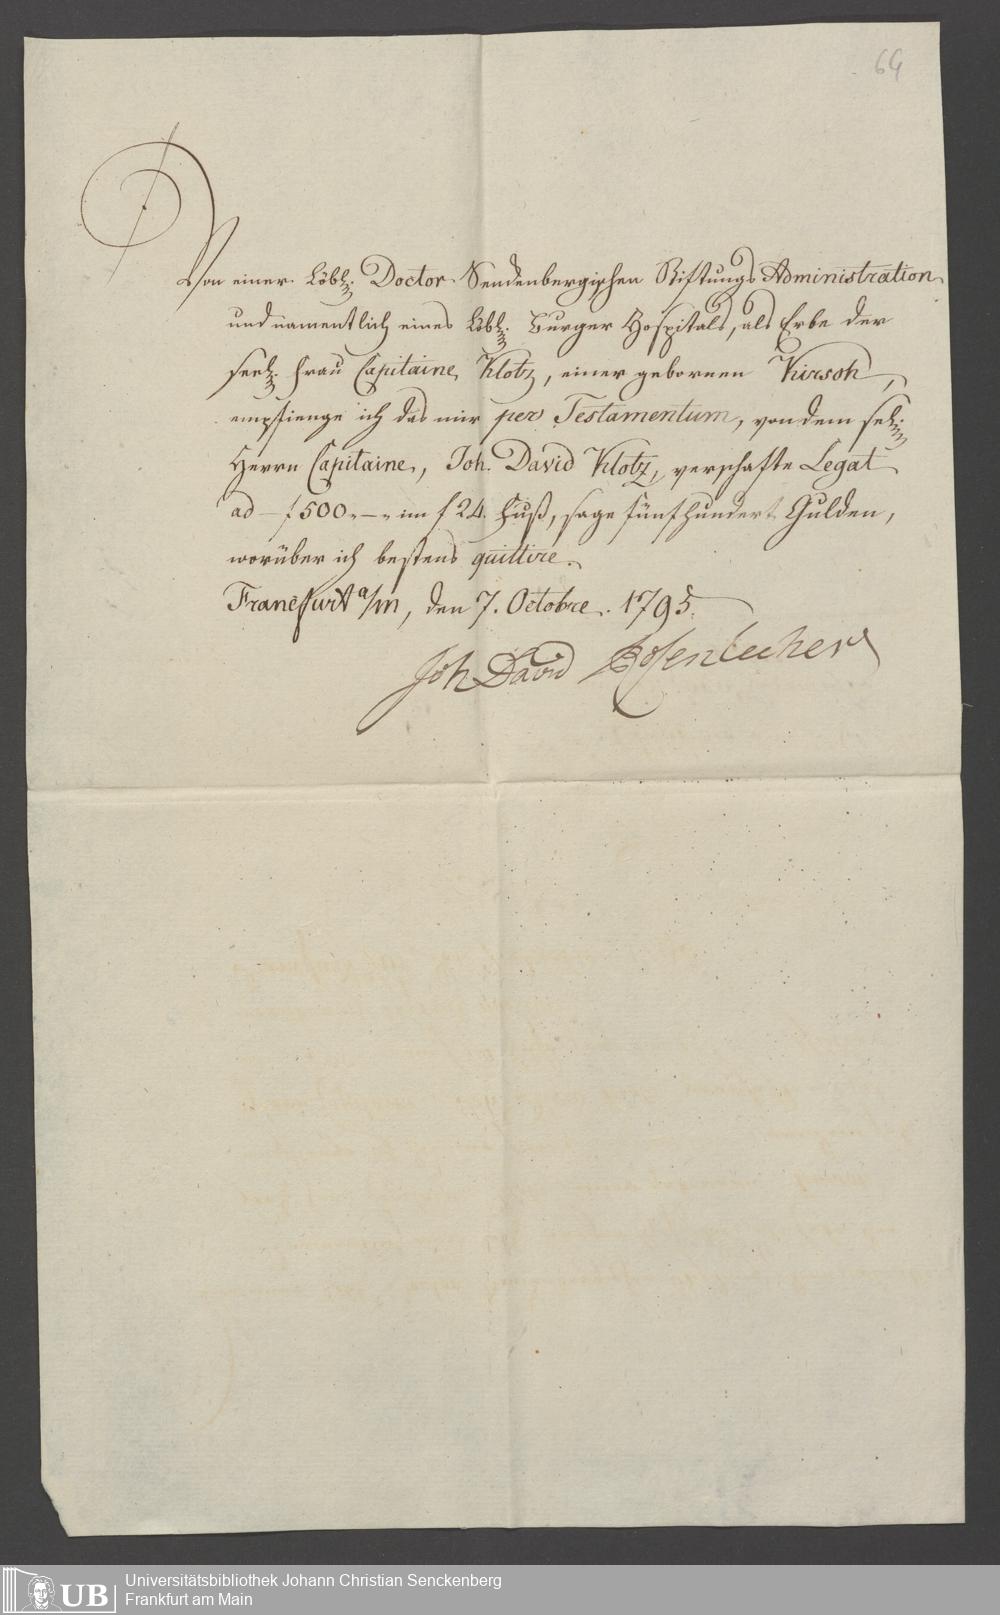 64
Von einer Löbl. Doctor Senckenbergischen Stiftungs Administration
und namentlich eines Löbl. Burger Hospitals, als Erbe der
seel. Frau Capitaine Klotz, einer gebornen Kirsch,
empfienge ich das mir per Testamentum, von dem sel.
Herrn Capitaine, Joh. David Klotz, verschafte Legat
ad - f 500.-.- im f 24. Fuß, sage fünfhundert Gulden,
worüber ich bestens quittire.
Francfurt a/m, den 7. Octobre. 1795.
Joh David Rosenlecher
UB
Universitätsbibliothek Johann Christian Senckenberg
Frankfurt am Main